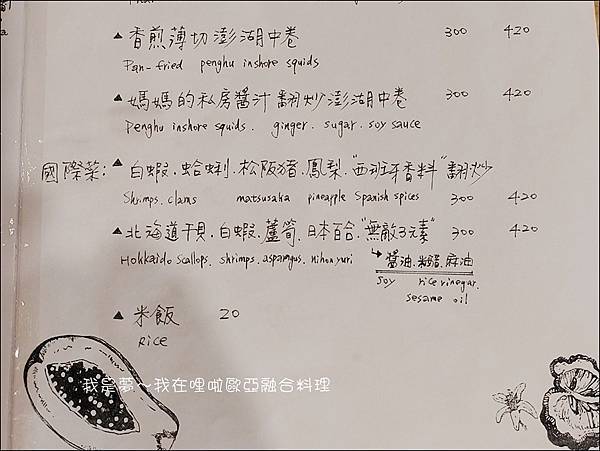 ▲ 香煎薄切澎湖中卷 300 420
Pan-fried penghu inshore squids
▲ 媽媽的私房醬汁翻炒澎湖中卷 300 420
Penghu inshore squids. ginger. sugar. soy sauce
國際菜: ▲ 白蝦.蛤蜊.松阪豬.鳳梨."西班牙香料"翻炒
Shrimps. clams matsusaka pineapple Spanish spices 300 420
▲ 北海道干貝.白蝦.蘆筍.日本百合."無敵3元素" 300 420
Hokkaido scallops. shrimps. asparagus. nihon yuri
醬油.米醋.麻油
soy rice vinegar.
sesame oil
▲ 米飯 20
Rice
我是夢~我在哩啦歐亞融合料理